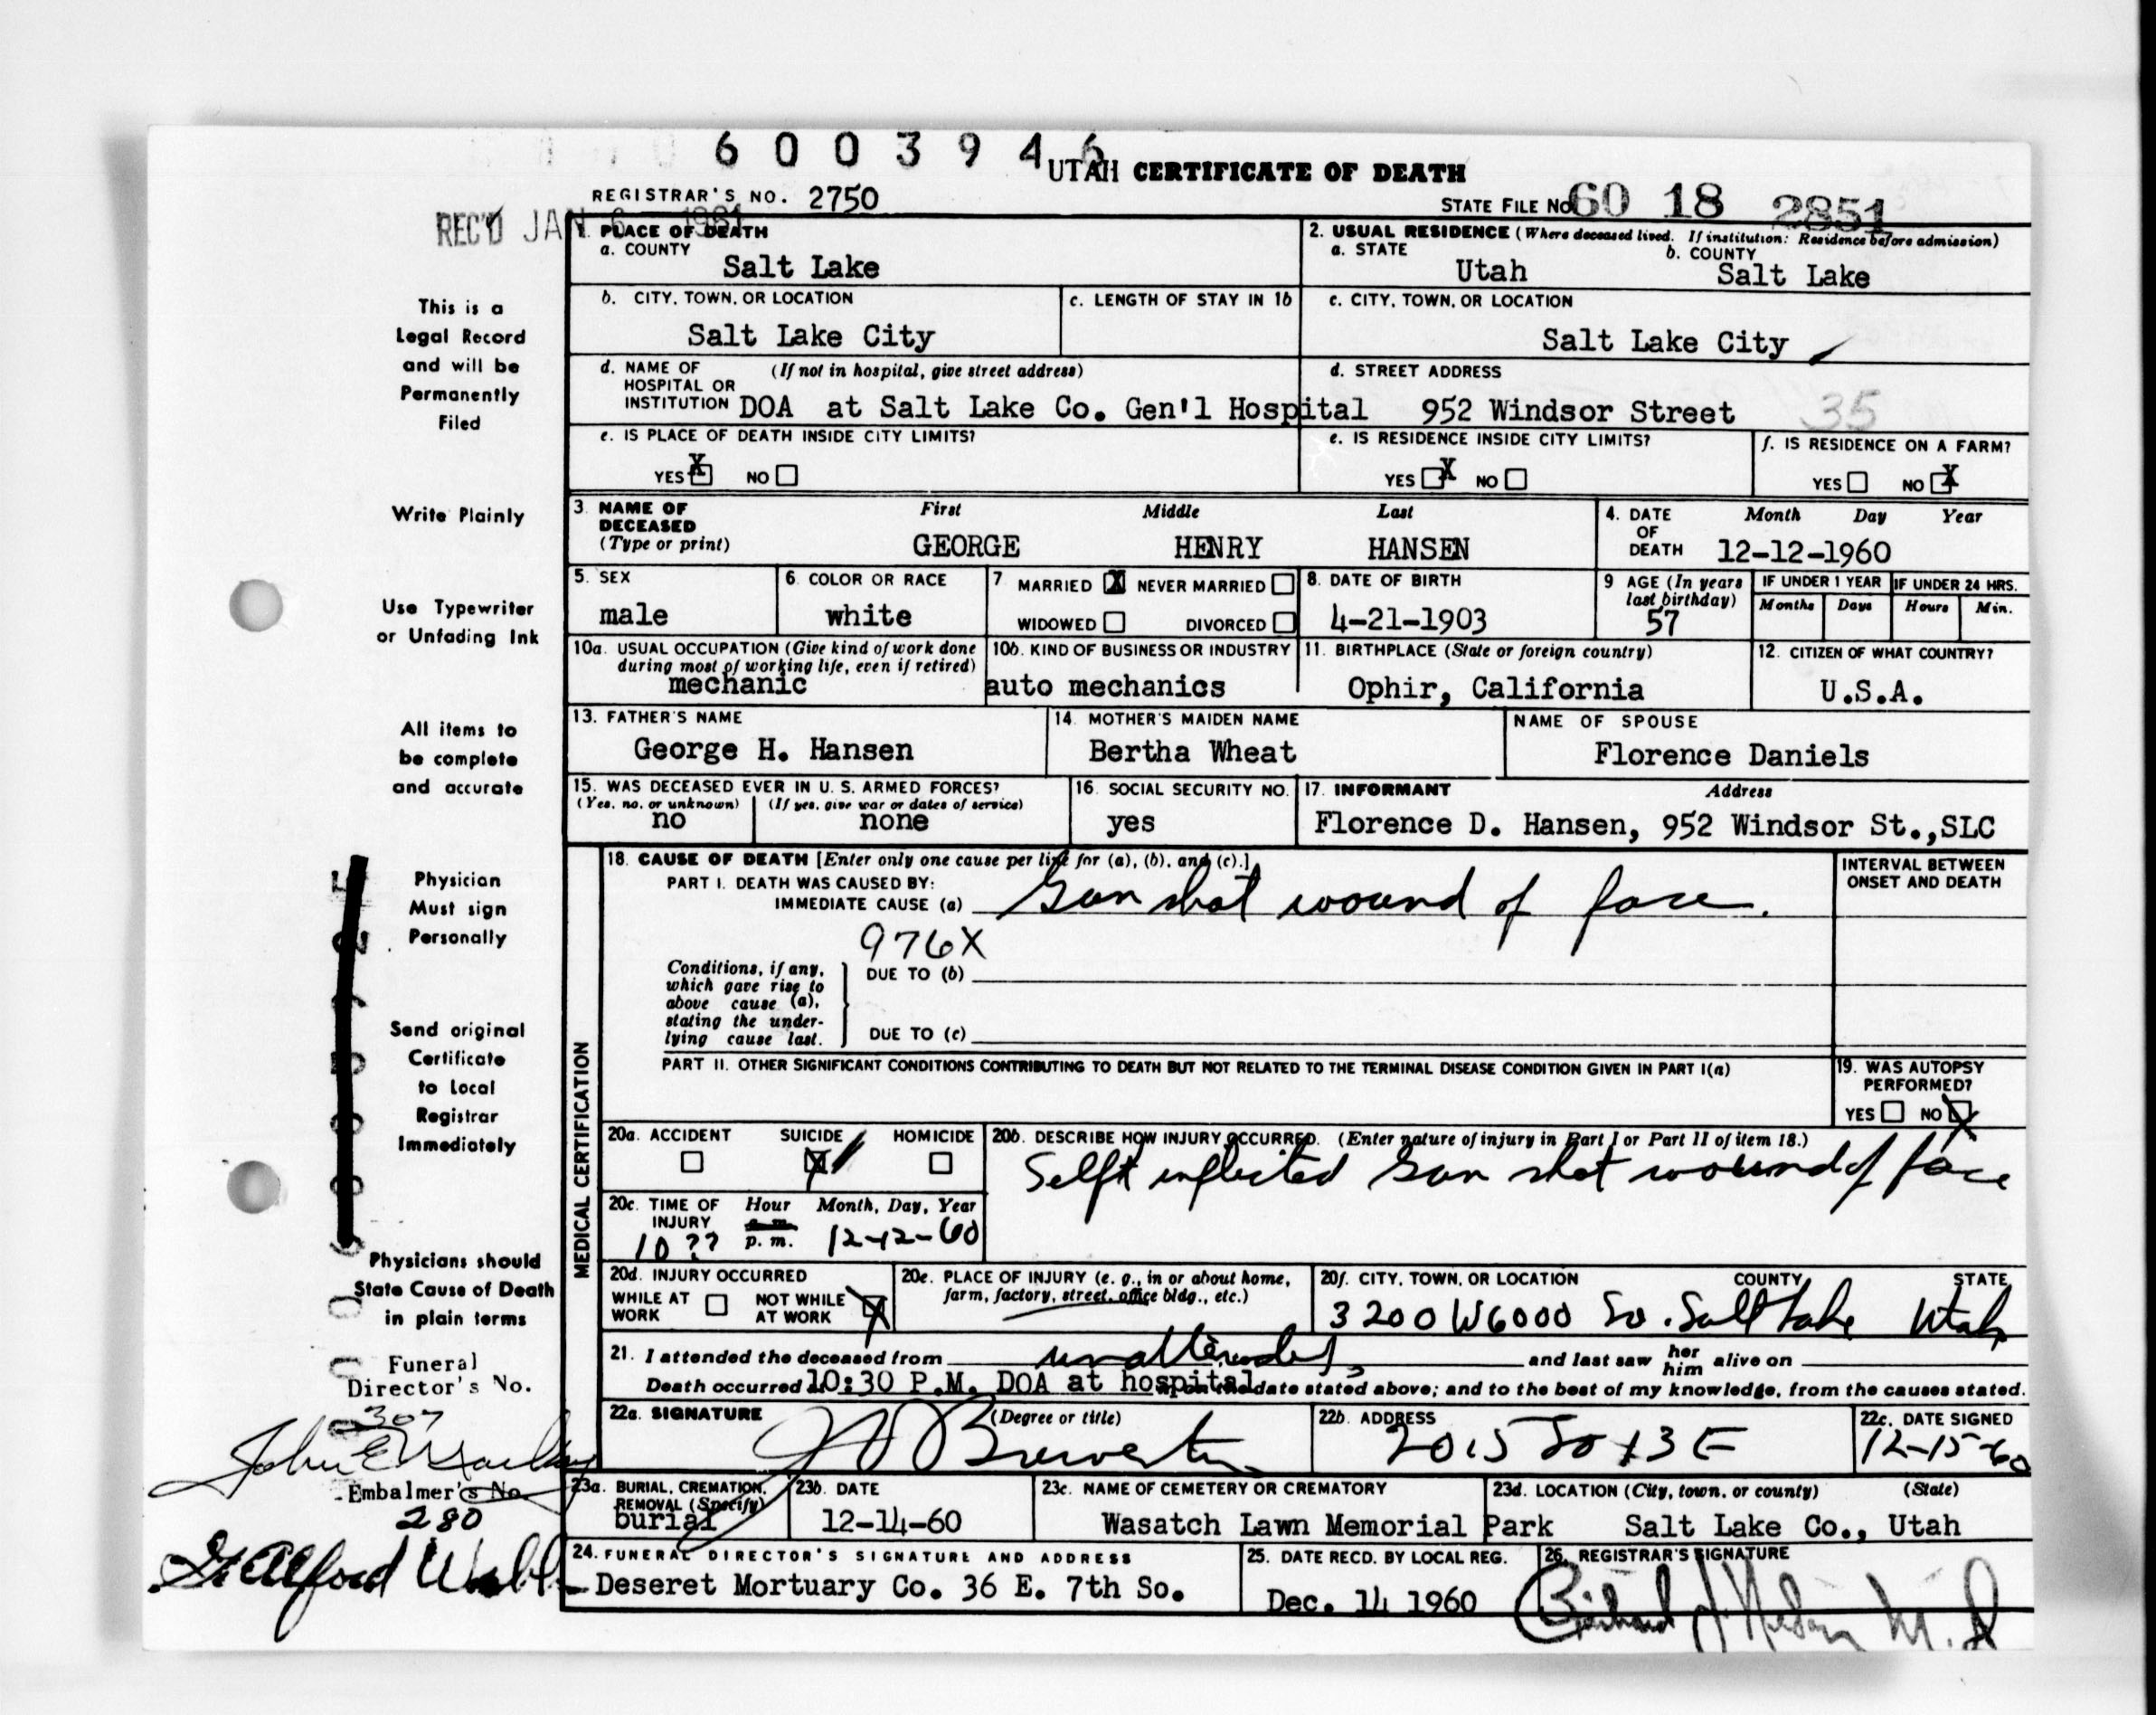 6003946
UTAH CERTIFICATE OF DEATH
REGISTRAR'S NO. 2750
STATE FILE NO. 60 18 2851
REC'D JAN 6 1961
1. PLACE OF DEATH
a. COUNTY
Salt Lake
2. USUAL RESIDENCE (Where deceased lived. If institution: Residence before admission)
a. STATE b. COUNTY
Utah Salt Lake
b. CITY, TOWN, OR LOCATION
Salt Lake City
c. LENGTH OF STAY IN 1b
c. CITY, TOWN, OR LOCATION
Salt Lake City
d. NAME OF HOSPITAL OR INSTITUTION (If not in hospital, give street address)
DOA at Salt Lake Co. Gen'l Hospital
d. STREET ADDRESS
952 Windsor Street 35
e. IS PLACE OF DEATH INSIDE CITY LIMITS?
YES X NO
e. IS RESIDENCE INSIDE CITY LIMITS?
YES X NO
f. IS RESIDENCE ON A FARM?
YES NO X
3. NAME OF DECEASED (Type or print)
First Middle Last
GEORGE HENRY HANSEN
4. DATE OF DEATH Month Day Year
12-12-1960
5. SEX
male
6. COLOR OR RACE
white
7 MARRIED X NEVER MARRIED
WIDOWED DIVORCED
8. DATE OF BIRTH
4-21-1903
9 AGE (In years last birthday)
57
IF UNDER 1 YEAR IF UNDER 24 HRS.
Months Days Hours Min.
10a. USUAL OCCUPATION (Give kind of work done during most of working life, even if retired)
mechanic
10b. KIND OF BUSINESS OR INDUSTRY
auto mechanics
11. BIRTHPLACE (State or foreign country)
Ophir, California
12. CITIZEN OF WHAT COUNTRY?
U.S.A.
13. FATHER'S NAME
George H. Hansen
14. MOTHER'S MAIDEN NAME
Bertha Wheat
NAME OF SPOUSE
Florence Daniels
15. WAS DECEASED EVER IN U. S. ARMED FORCES?
(Yes, no, or unknown) (If yes, give war or dates of service)
no none
16. SOCIAL SECURITY NO.
yes
17. INFORMANT Address
Florence D. Hansen, 952 Windsor St.,SLC
MEDICAL CERTIFICATION
18. CAUSE OF DEATH [Enter only one cause per line for (a), (b), and (c).]
PART I. DEATH WAS CAUSED BY:
IMMEDIATE CAUSE (a) Gun shot wound of face.
976X
Conditions, if any, which gave rise to above cause (a), stating the underlying cause last.
DUE TO (b)
DUE TO (c)
INTERVAL BETWEEN ONSET AND DEATH
PART II. OTHER SIGNIFICANT CONDITIONS CONTRIBUTING TO DEATH BUT NOT RELATED TO THE TERMINAL DISEASE CONDITION GIVEN IN PART I(a)
19. WAS AUTOPSY PERFORMED?
YES NO X
20a. ACCIDENT SUICIDE HOMICIDE
X
20b. DESCRIBE HOW INJURY OCCURRED. (Enter nature of injury in Part I or Part II of item 18.)
Self inflicted Gun shot wound of face
20c. TIME OF INJURY Hour Month, Day, Year
10 ?? a. m. p. m. 12-12-60
20d. INJURY OCCURRED
WHILE AT WORK NOT WHILE AT WORK X
20e. PLACE OF INJURY (e. g., in or about home, farm, factory, street, office bldg., etc.)
20f. CITY, TOWN, OR LOCATION COUNTY STATE
3200 W 6000 So. Salt Lake Utah
21. I attended the deceased from unattended and last saw her him alive on
Death occurred at 10:30 P.M. DOA at hospital on the date stated above; and to the best of my knowledge, from the causes stated.
22a. SIGNATURE (Degree or title)
22b. ADDRESS
2015 So 13 E
22c. DATE SIGNED
12-15-60
23a. BURIAL, CREMATION, REMOVAL (Specify)
burial
23b. DATE
12-14-60
23c. NAME OF CEMETERY OR CREMATORY
Wasatch Lawn Memorial Park
23d. LOCATION (City, town, or county) (State)
Salt Lake Co., Utah
24. FUNERAL DIRECTOR'S SIGNATURE AND ADDRESS
Deseret Mortuary Co. 36 E. 7th So.
25. DATE RECD. BY LOCAL REG.
Dec. 14 1960
26. REGISTRAR'S SIGNATURE
This is a
Legal Record
and will be
Permanently
Filed
Write Plainly
Use Typewriter
or Unfading Ink
All items to
be complete
and accurate
Physician
Must sign
Personally
Send original
Certificate
to Local
Registrar
Immediately
Physicians should
State Cause of Death
in plain terms
Funeral
Director's No.
307
John E
Embalmer's No.
280
Alford